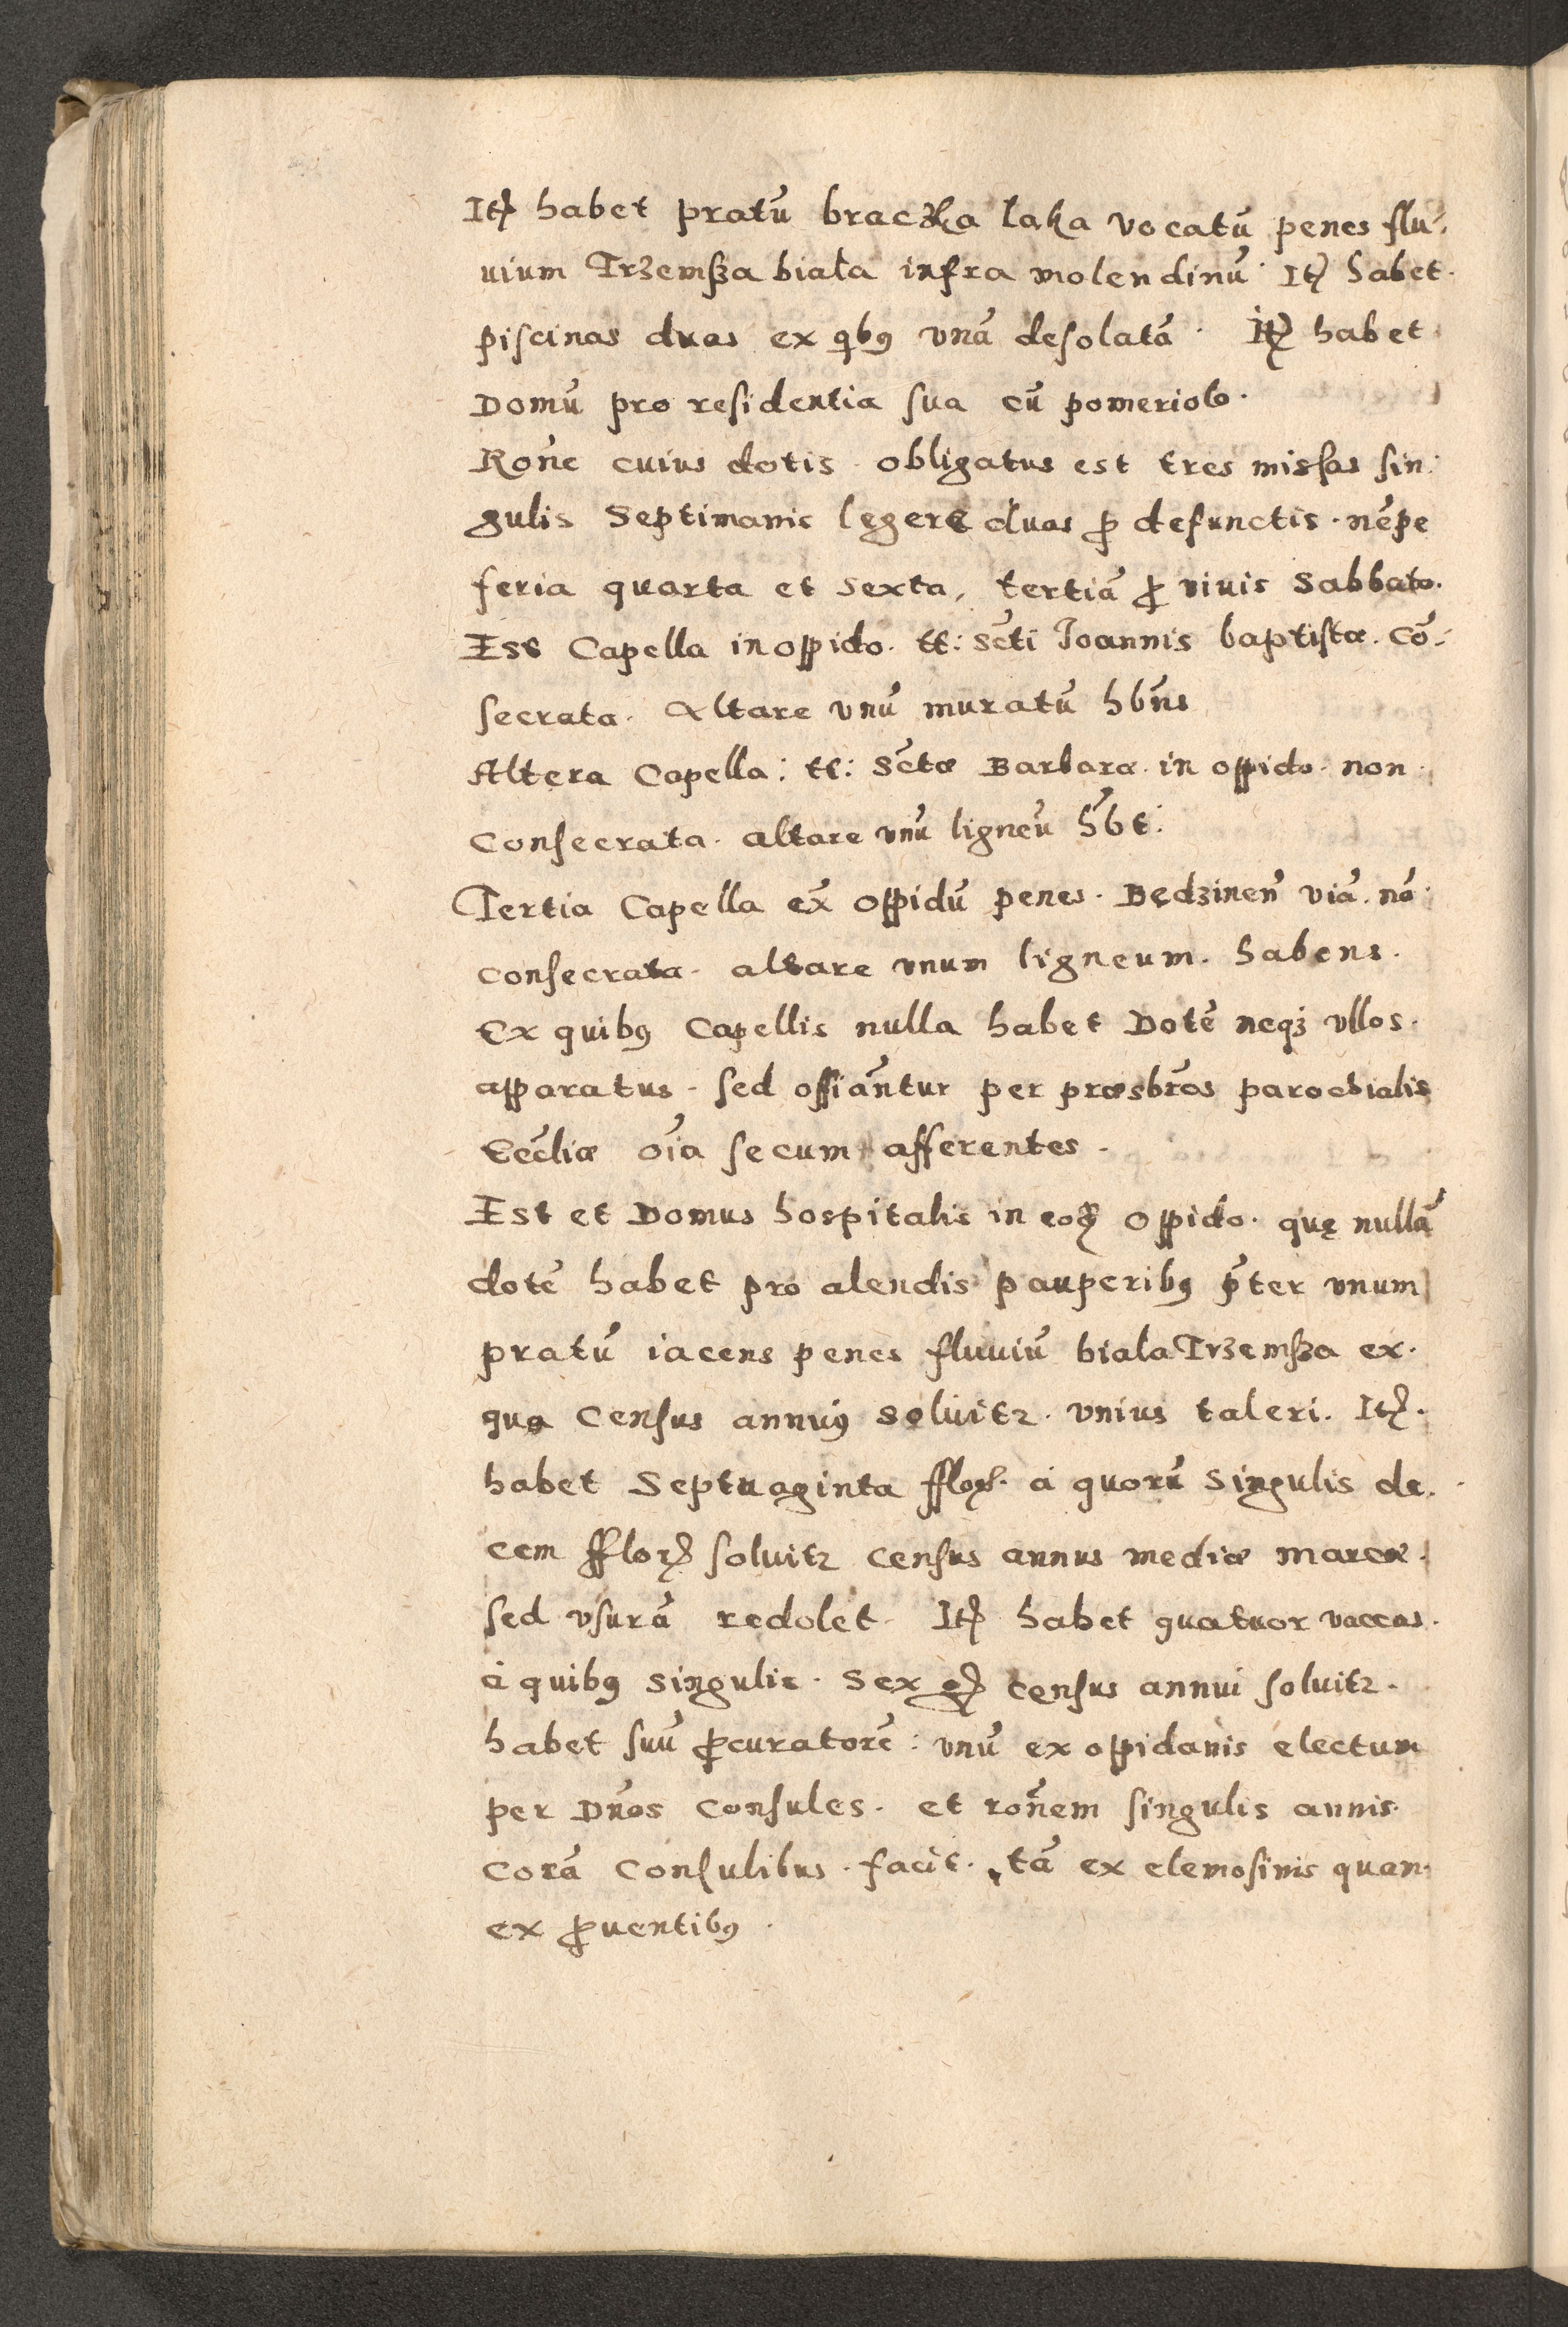 Itꝫ habet pratū braczka laka vocatū penes flu-
uium Trzemſza biała infra molendinū · Itꝫ habet ·
piscinas duas ex qibꝯ vnā desolatā · Itꝫ habet
Domū pro residentia sua cū pomeriolo ·
Rōne cuius dotis · obligatus est tres missas sin-
gulis Septimanis legere duas ꝓ defunctis · nēpe
feria quarta et sexta, tertiā ꝓ viuis Sabbato ·
Est Capella in oppido · tt: Scti Joannis baptistæ · Cō-
secrata · Altare vnū muratū hbns
Altera Capella: tt: Sctæ Barbaræ · in oppido · non
Consecrata · altare vnū ligneū hbt:
Tertia Capella ex oppidū penes · Będzinen viā · nō
consecrata · altare vnum ligneum · habens ·
Ex quibꝯ Capellis nulla habet Dotē neqꝫ vllos ·
apparatus · sed offiāntur per præsbros parochialis
Eccliæ oīa secum afferentes ·
Est et Domus hospitalis in eoꝫ Oppido · quę nullā
dotē habet pro alendis pauperibꝯ p̄ter vnum
pratū iacens penes fluuiū biala Trzemſza ex ·
quo Census annuꝯ soluitꝛ · vnius taleri · Itꝫ ·
habet Septuaginta fflor · à quorū singulis de-
cem fflorꝫ soluitꝛ census annus mediæ marcæ ·
sed vsurā redolet · Itꝫ habet quatuor vaccas ·
à quibꝯ singulis · Sex gꝫ census annui soluitꝛ ·
habet suū ꝓcuratorē: vnū ex oppidanis electum
per Dnos Consules · et ronem singulis annis
Corā Consulibus · facit · tā ex elemosinis quan
ex ꝓuentibꝯ ·